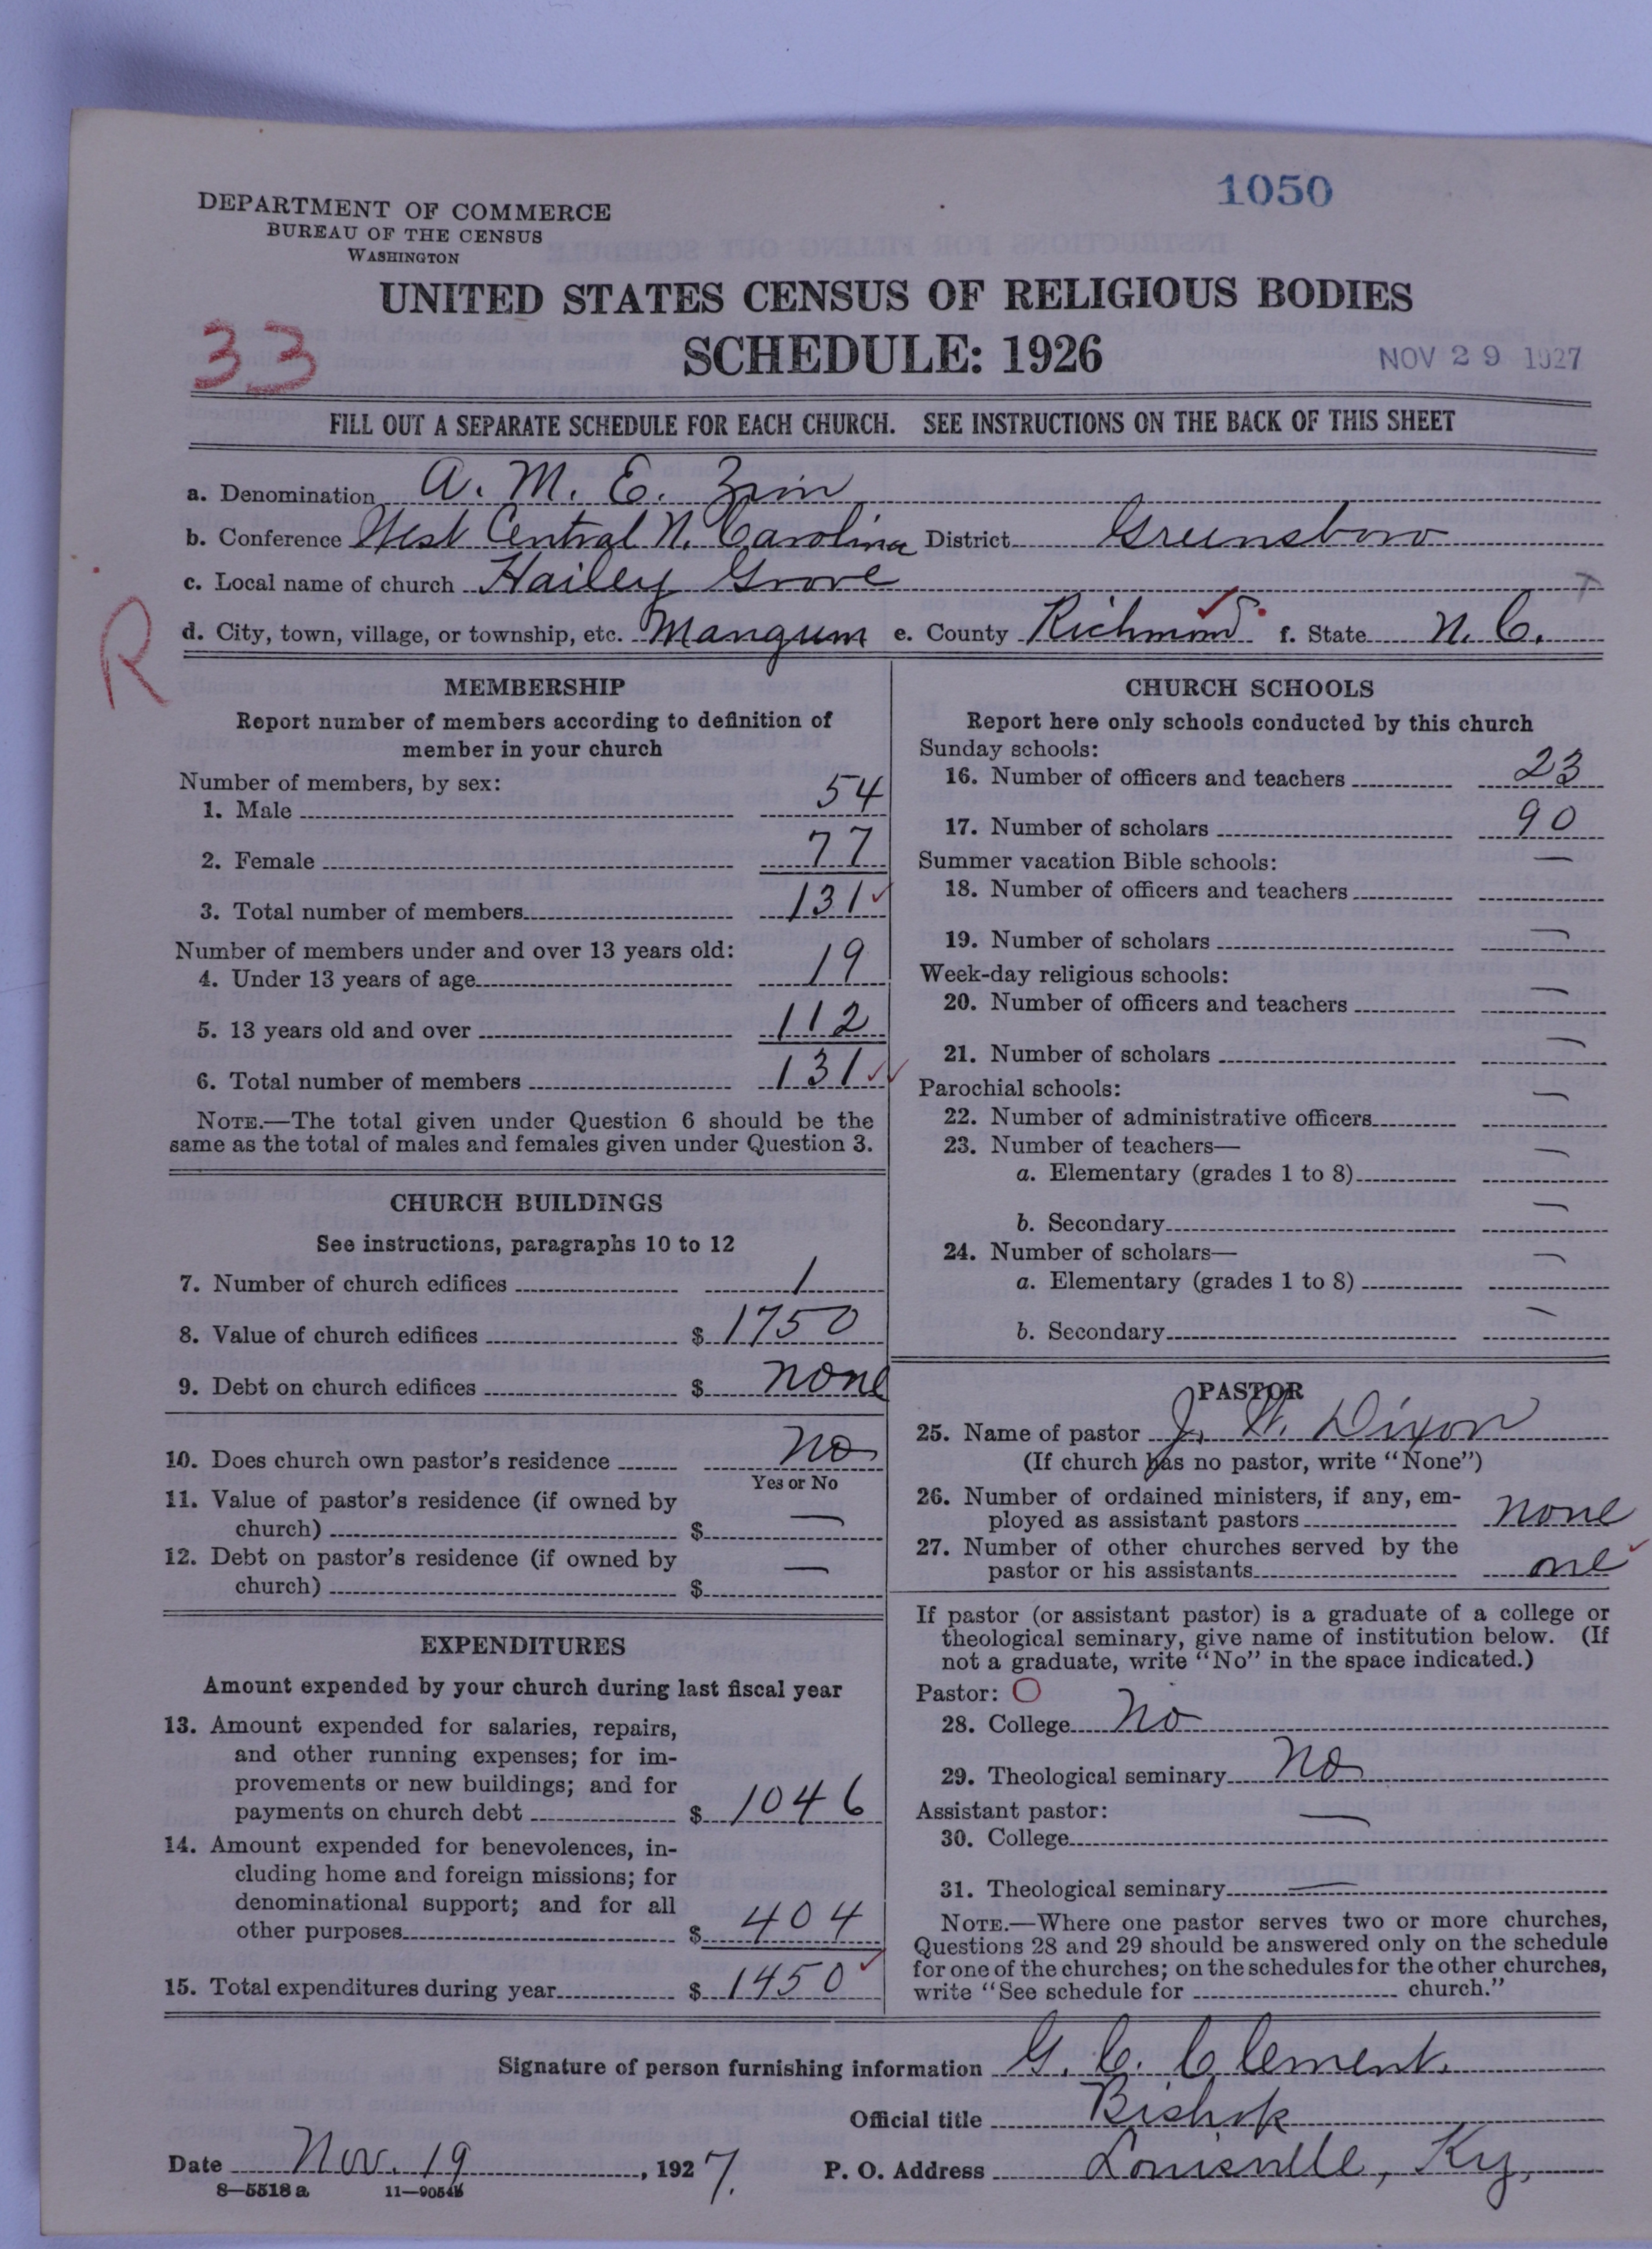 1050
DEPARTMENT OF COMMERCE
BUREAU OF THE CENSUS
WASHINGTON
UNITED STATES CENSUS OF RELIGIOUS BODIES
33
SCHEDULE: 1926
NOV 29 1927
FILL OUT A SEPARATE SCHEDULE FOR EACH CHURCH. SEE INSTRUCTIONS ON THE BACK OF THIS SHEET
a. Denomination A. M. E. Zion
b. Conference West Central N. Carolina District Greensboro
c. Local name of church Hailey Grove
R
d. City, town, village, or township, etc. Mangum e. County Richmond f. State N. C.
MEMBERSHIP
Report number of members according to definition of
member in your church
Number of members, by sex:
1. Male 54
2. Female 77
3. Total number of members 131 ✓
Number of members under and over 13 years old:
4. Under 13 years of age 19
5. 13 years old and over 112
6. Total number of members 131 ✓✓
NOTE.—The total given under Question 6 should be the
same as the total of males and females given under Question 3.
CHURCH BUILDINGS
See instructions, paragraphs 10 to 12
7. Number of church edifices 1
8. Value of church edifices $ 1750
9. Debt on church edifices $ none
10. Does church own pastor's residence No
Yes or No
11. Value of pastor's residence (if owned by
church) $ —
12. Debt on pastor's residence (if owned by
church) $ —
EXPENDITURES
Amount expended by your church during last fiscal year
13. Amount expended for salaries, repairs,
and other running expenses; for im-
provements or new buildings; and for
payments on church debt $ 1046
14. Amount expended for benevolences, in-
cluding home and foreign missions; for
denominational support; and for all
other purposes $ 404
15. Total expenditures during year $ 1450 ✓
CHURCH SCHOOLS
Report here only schools conducted by this church
Sunday schools:
16. Number of officers and teachers 23
17. Number of scholars 90
Summer vacation Bible schools:
18. Number of officers and teachers —
19. Number of scholars —
Week-day religious schools:
20. Number of officers and teachers —
21. Number of scholars —
Parochial schools:
22. Number of administrative officers —
23. Number of teachers—
a. Elementary (grades 1 to 8) —
b. Secondary —
24. Number of scholars—
a. Elementary (grades 1 to 8) —
b. Secondary —
PASTOR
25. Name of pastor J. W. Dixon
(If church has no pastor, write "None")
26. Number of ordained ministers, if any, em-
ployed as assistant pastors none
27. Number of other churches served by the
pastor or his assistants one ✓
If pastor (or assistant pastor) is a graduate of a college or
theological seminary, give name of institution below. (If
not a graduate, write "No" in the space indicated.)
Pastor: O
28. College No
29. Theological seminary No
Assistant pastor:
30. College —
31. Theological seminary —
NOTE.—Where one pastor serves two or more churches,
Questions 28 and 29 should be answered only on the schedule
for one of the churches; on the schedules for the other churches,
write "See schedule for church."
Signature of person furnishing information G. C. Clement.
Official title Bishop
Date Nov. 19, 1927. P. O. Address Louisville, Ky.
8—5518 a 11—9054b